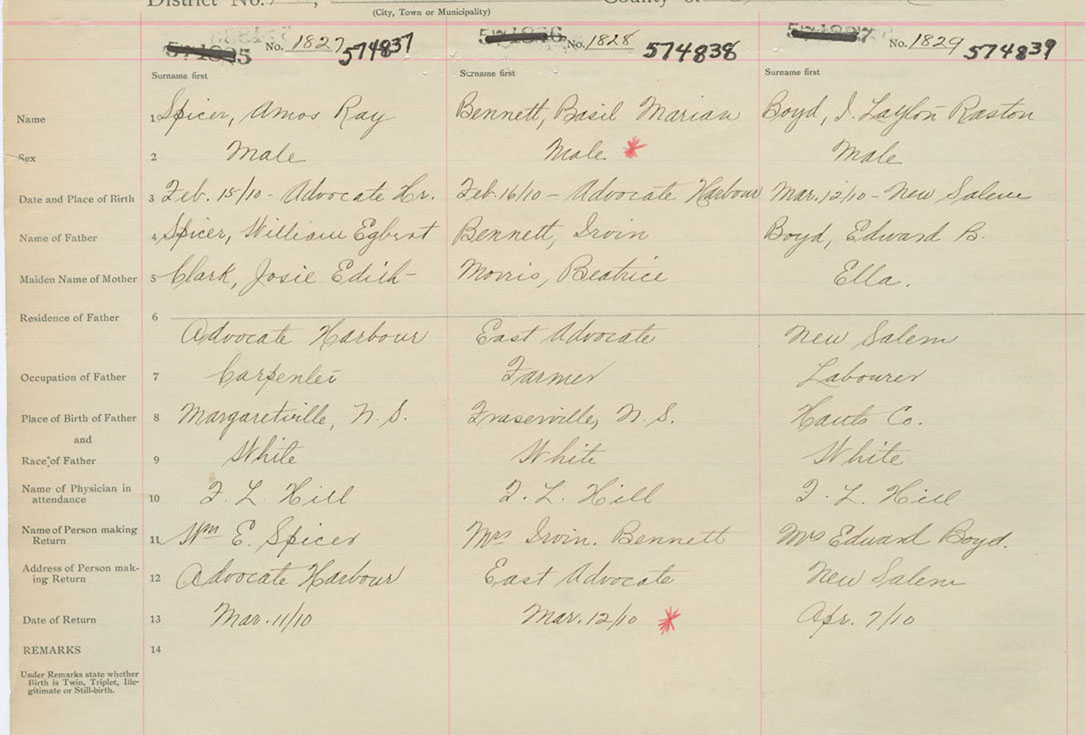 District No. County of
(City, Town or Municipality)
No. 1827 574837 No. 1828 574838 No. 1829 574839
Surname first Surname first Surname first
Name 1 Spicer, Amos Ray Bennett, Basil Marian Boyd, J. Layton Raston
Sex 2 Male Male Male
Date and Place of Birth 3 Feb. 15/10 - Advocate Hr. Feb. 16/10 - Advocate Harbour Mar. 12/10 - New Salem
Name of Father 4 Spicer, William Egbert Bennett, Irvin Boyd, Edward B.
Maiden Name of Mother 5 Clark, Josie Edith Morris, Beatrice Ella.
Residence of Father 6
Advocate Harbour East Advocate New Salem
Occupation of Father 7 Carpenter Farmer Labourer
Place of Birth of Father 8 Margaretville, N. S. Fraserville, N. S. Hants Co.
and
Race of Father 9 White White White
Name of Physician in
attendance 10 F. L. Hill F. L. Hill F. L. Hill
Name of Person making
Return 11 Wm E. Spicer Mrs Irvin. Bennett Mrs Edward Boyd.
Address of Person mak-
ing Return 12 Advocate Harbour East Advocate New Salem
Date of Return 13 Mar. 11/10 Mar. 12/10 Apr. 7/10
REMARKS 14
Under Remarks state whether
Birth is Twin, Triplet, Ille-
gitimate or Still-birth.